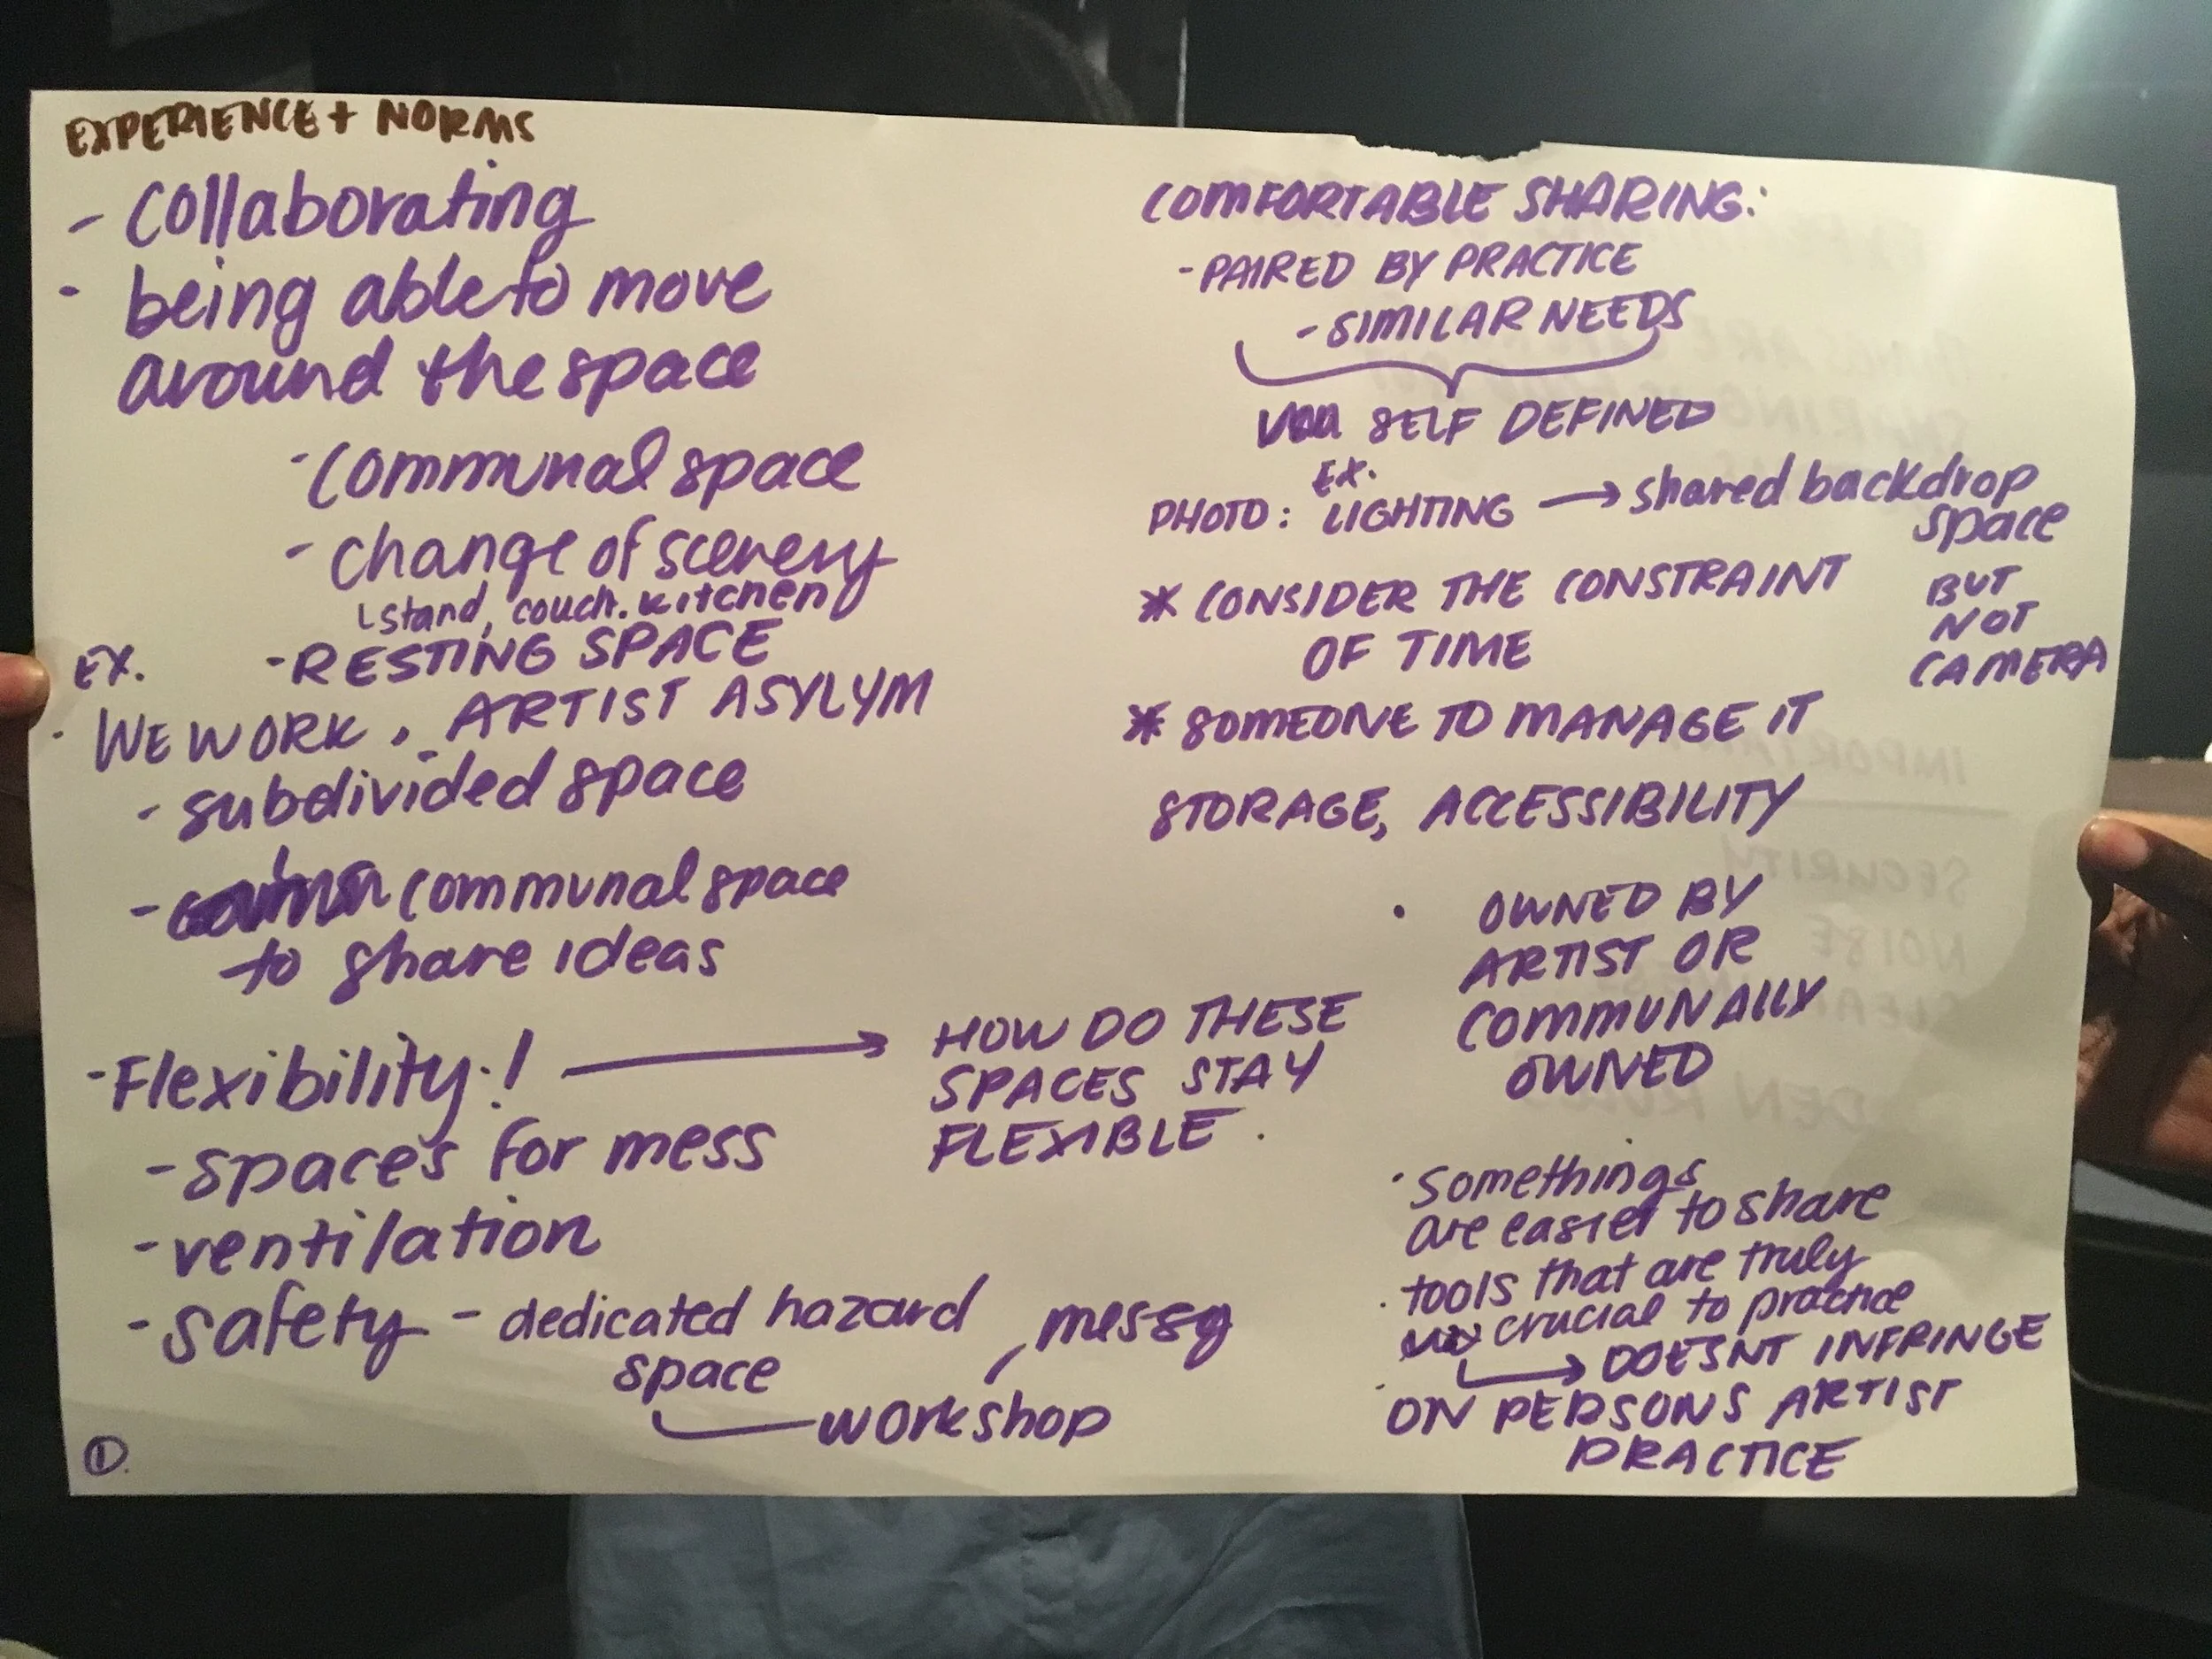 EXPERIENCE + NORMS
- Collaborating
- being able to move
around the space
- Communal space
- change of scenery
stand, couch. kitchen
EX. - RESTING SPACE
· WE WORK, · ARTIST ASYLYM
- subdivided space
- communal space
to share ideas
- Flexibility! → HOW DO THESE
SPACES STAY
FLEXIBLE.
- spaces for mess
- ventilation
- safety - dedicated hazard
space
workshop
messy
①.
COMFORTABLE SHARING:
- PAIRED BY PRACTICE
- SIMILAR NEEDS
SELF DEFINED
EX.
PHOTO: LIGHTING → shared backdrop
space
BUT
NOT
CAMERA
* CONSIDER THE CONSTRAINT
OF TIME
* SOMEONE TO MANAGE IT
STORAGE, ACCESSIBILITY
· OWNED BY
ARTIST OR
COMMUNALLY
OWNED
· Somethings
are easier to share
· tools that are truly
crucial to practice
→ DOESNT INFRINGE
ON PERSONS ARTIST
PRACTICE